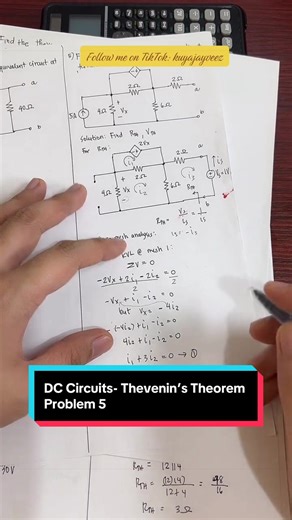 Find the
5) F
equivalent circuit at
Follow me on TikTok: kuyajayveez
a
a
2Ω
2Ω
5A
4Ω
Vx
6Ω
b
b
Solution: Find RTH, VTH
For RTH:
2Vx
a
2Ω
i1
2Ω
i3
4Ω
Vx
i2
6Ω
i3
b
mesh analysis:
is = -i3
KVL @ mesh 1:
ΣV = 0
-2Vx + 2i1 - 2i2 = 0
2
2
-Vx + i1 - i2 = 0
but Vx = -4i2
-(-4i2) + i1 - i2 = 0
4i2 + i1 - i2 = 0
i1 + 3i2 = 0 → ①
DC Circuits- Thevenin's Theorem
Problem 5
30V
RTH = 12||4
RTH = (12)(4) = 48
12+4
16
RTH = 3Ω